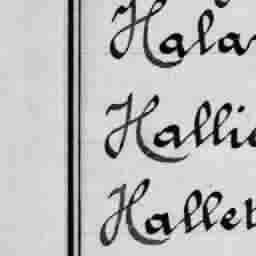 Hala
Halli
Halle